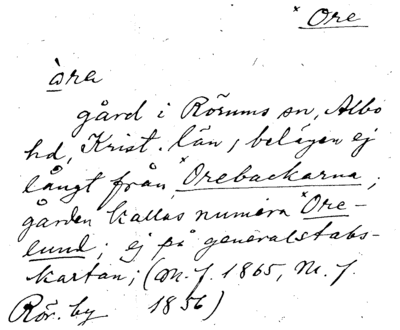 × Ore
òra
gård i Rörums sn, Albo
hd, Krist. län, belägen ej
långt från ×Orebackarna;
gården kallas numera ×Ore-
lund; ej på generalstabs-
kartan; (M. f. 1865, M. f.
Rör. by 1856)